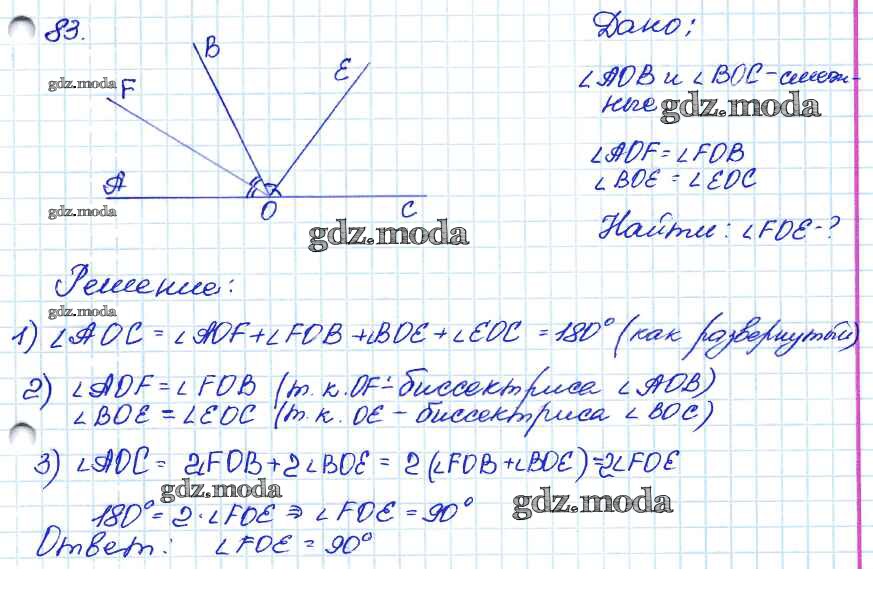 83.
B
E
F
A
O
C
gdz.moda
gdz.moda
gdz.moda
Дано:
∠AOB и ∠BOC - смеж-
ные
gdz.moda
∠AOF = ∠FOB
∠BOE = ∠EOC
Найти: ∠FOE - ?
Решение:
gdz.moda
1) ∠AOC = ∠AOF + ∠FOB + ∠BOE + ∠EOC = 180° (как развернутый)
2) ∠AOF = ∠FOB (т.к. OF - биссектриса ∠AOB)
∠BOE = ∠EOC (т.к. OE - биссектриса ∠BOC)
3) ∠AOC = 2∠FOB + 2∠BOE = 2(∠FOB + ∠BOE) = 2∠FOE
gdz.moda
gdz.moda
180° = 2·∠FOE ⇒ ∠FOE = 90°
Ответ: ∠FOE = 90°